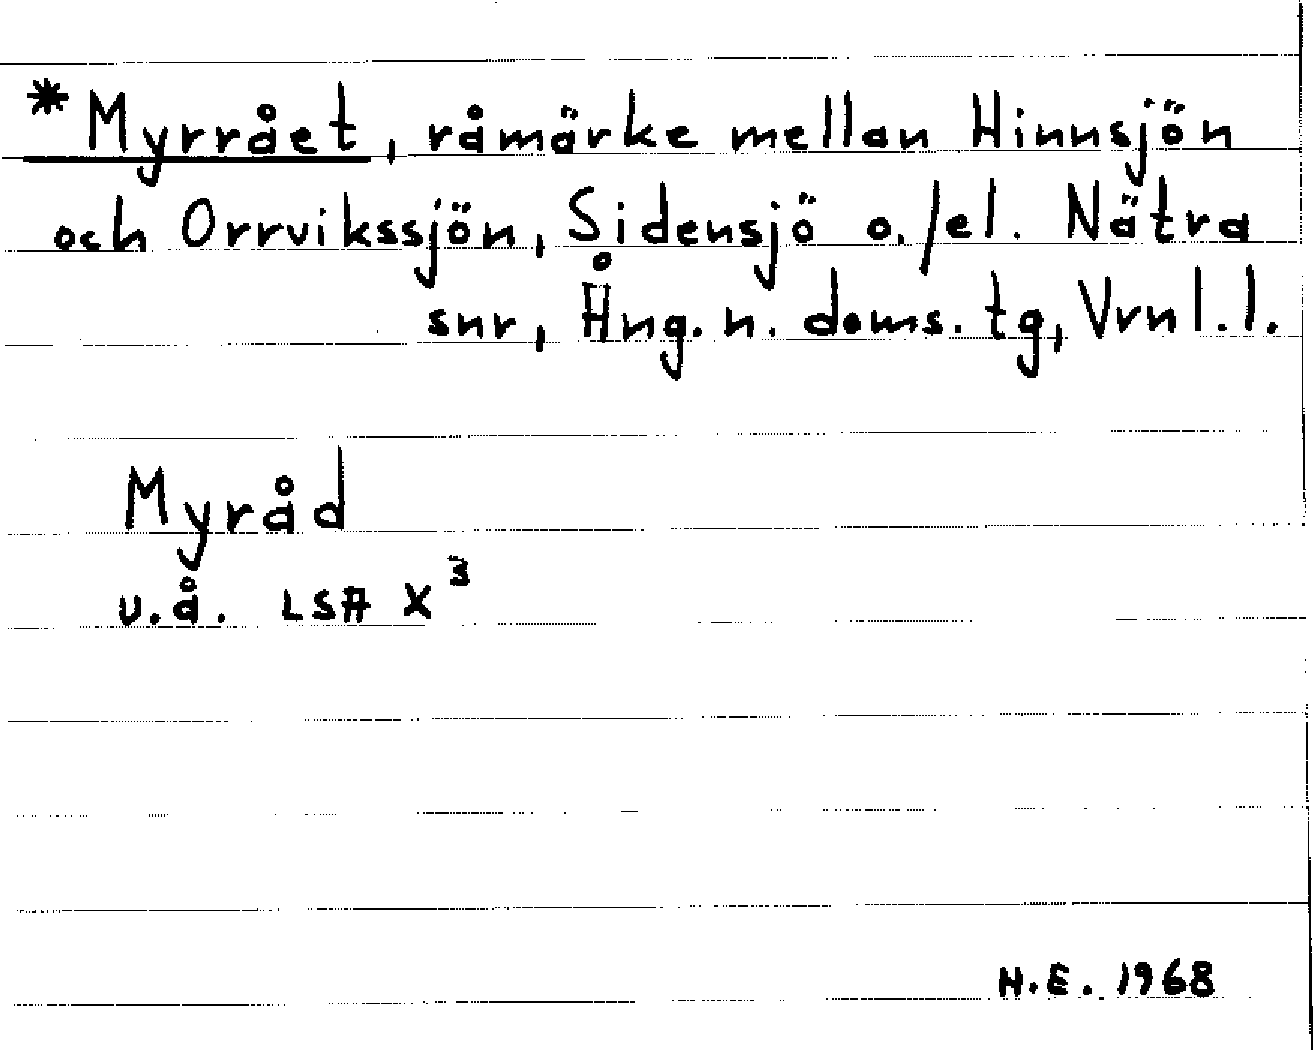 *Myrrået, råmärke mellan Hinnsjön
och Orrvikssjön, Sidensjö o./el. Nätra
snr, Ång. n. doms. tg, Vrnl. l.
Myråd
u.å. LSA X³
H.E. 1968